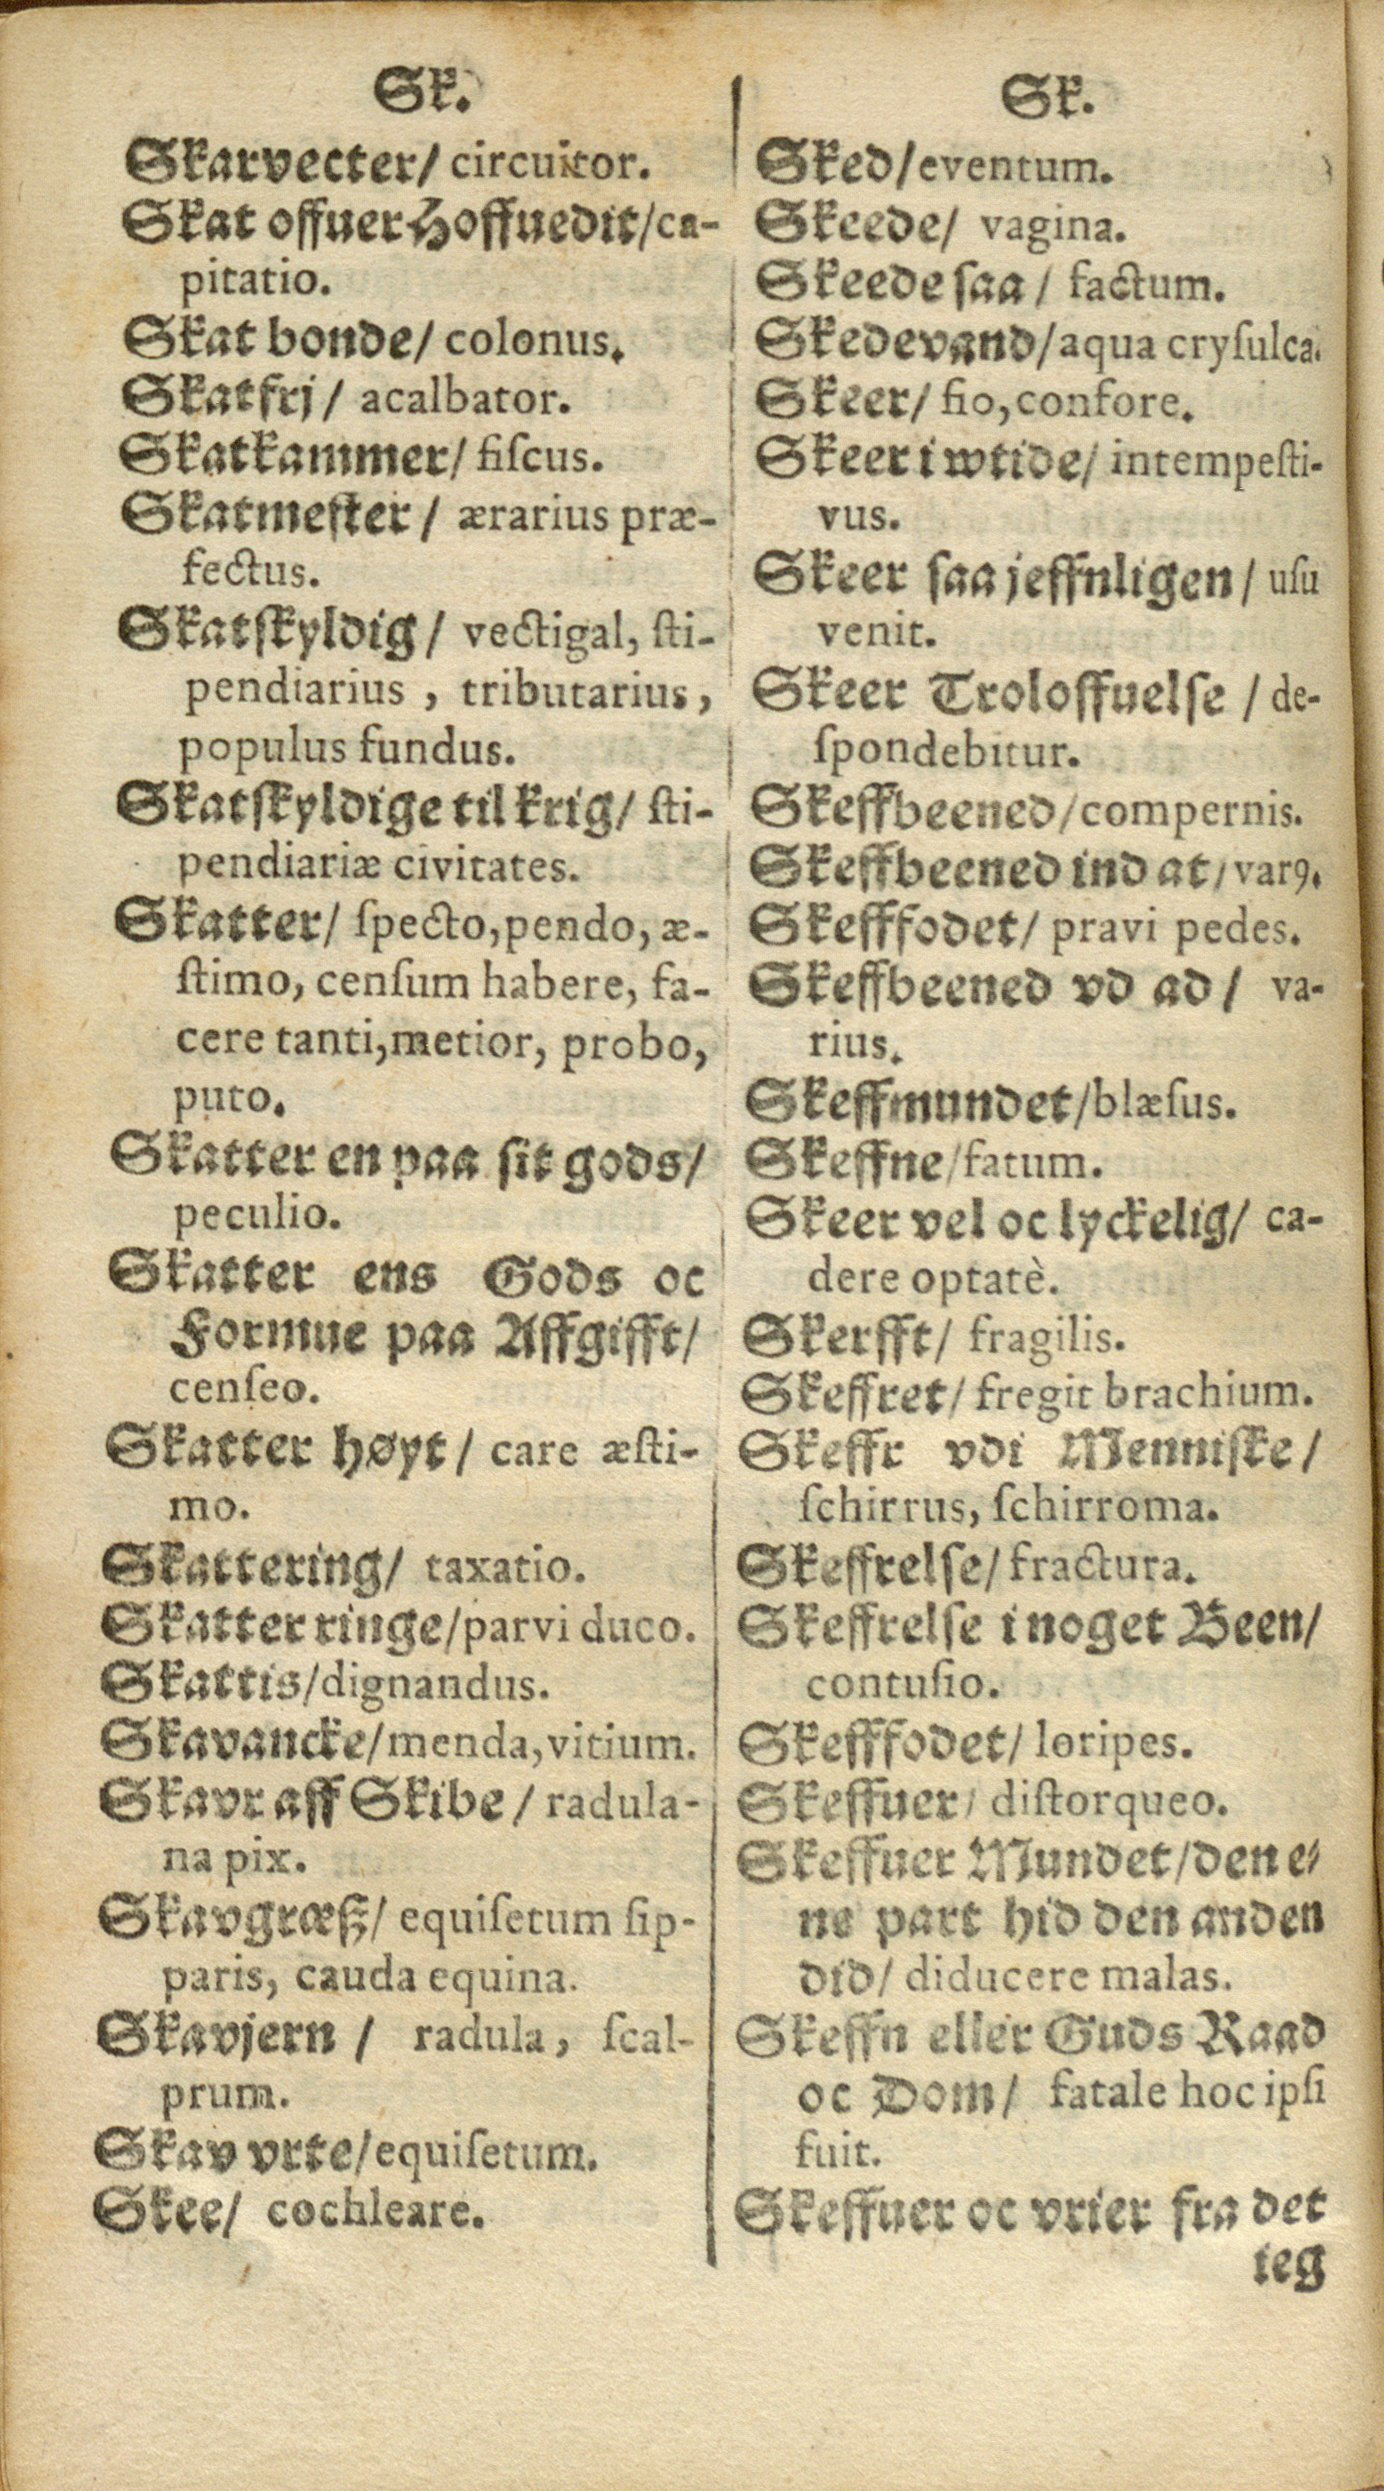 Sk.
Skarvecter/ circuitor.
Skat offuer Hoffuedit/ca-
pitatio.
Skat bonde/ colonus.
Skatfrj/ acalbator.
Skatkammer/ fiſcus.
Skatmeſter/ ærarius præ-
fectus.
Skatſkyldig/ vectigal, ſti-
pendiarius, tributarius,
populus fundus.
Skatſkyldige til krig/ ſti-
pendiariæ civitates.
Skatter/ ſpecto, pendo, æ-
ſtimo, cenſum habere, fa-
cere tanti, metior, probo,
puto.
Skatter en paa ſit gods/
peculio.
Skatter ens Gods oc
Formue paa Affgifft/
cenſeo.
Skatter høyt/ care æſti-
mo.
Skattering/ taxatio.
Skatter ringe/parvi duco.
Skattis/dignandus.
Skavancke/menda, vitium.
Skavr aff Skibe/ radula-
na pix.
Skavgræß/ equiſetum ſip-
paris, cauda equina.
Skavjern/ radula, ſcal-
prum.
Skav vrte/equiſetum.
Skee/ cochleare.
Sk.
Sked/eventum.
Skeede/ vagina.
Skeede ſaa/ factum.
Skedevand/aqua cryſulca.
Skeer/ fio, confore.
Skeer i wtide/ intempeſti-
vus.
Skeer ſaa jeffnligen/ uſu
venit.
Skeer Troloffuelſe/ de-
ſpondebitur.
Skeffbeened/compernis.
Skeffbeened ind at/varꝰ.
Skefffodet/ pravi pedes.
Skeffbeened vd ad/ va-
rius.
Skeffmundet/blæſus.
Skeffne/fatum.
Skeer vel oc lyckelig/ ca-
dere optatè.
Skerfft/ fragilis.
Skeffret/ fregit brachium.
Skeffr vdi Menniſke/
ſchirrus, ſchirroma.
Skeffrelſe/ fractura.
Skeffrelſe i noget Been/
contuſio.
Skefffodet/ loripes.
Skeffuer/ diſtorqueo.
Skeffuer Mundet/den e-
ne part hid den anden
did/ diducere malas.
Skeffn eller Guds Raad
oc Dom/ fatale hoc ipſi
fuit.
Skeffuer oc vrier fra det
ieg